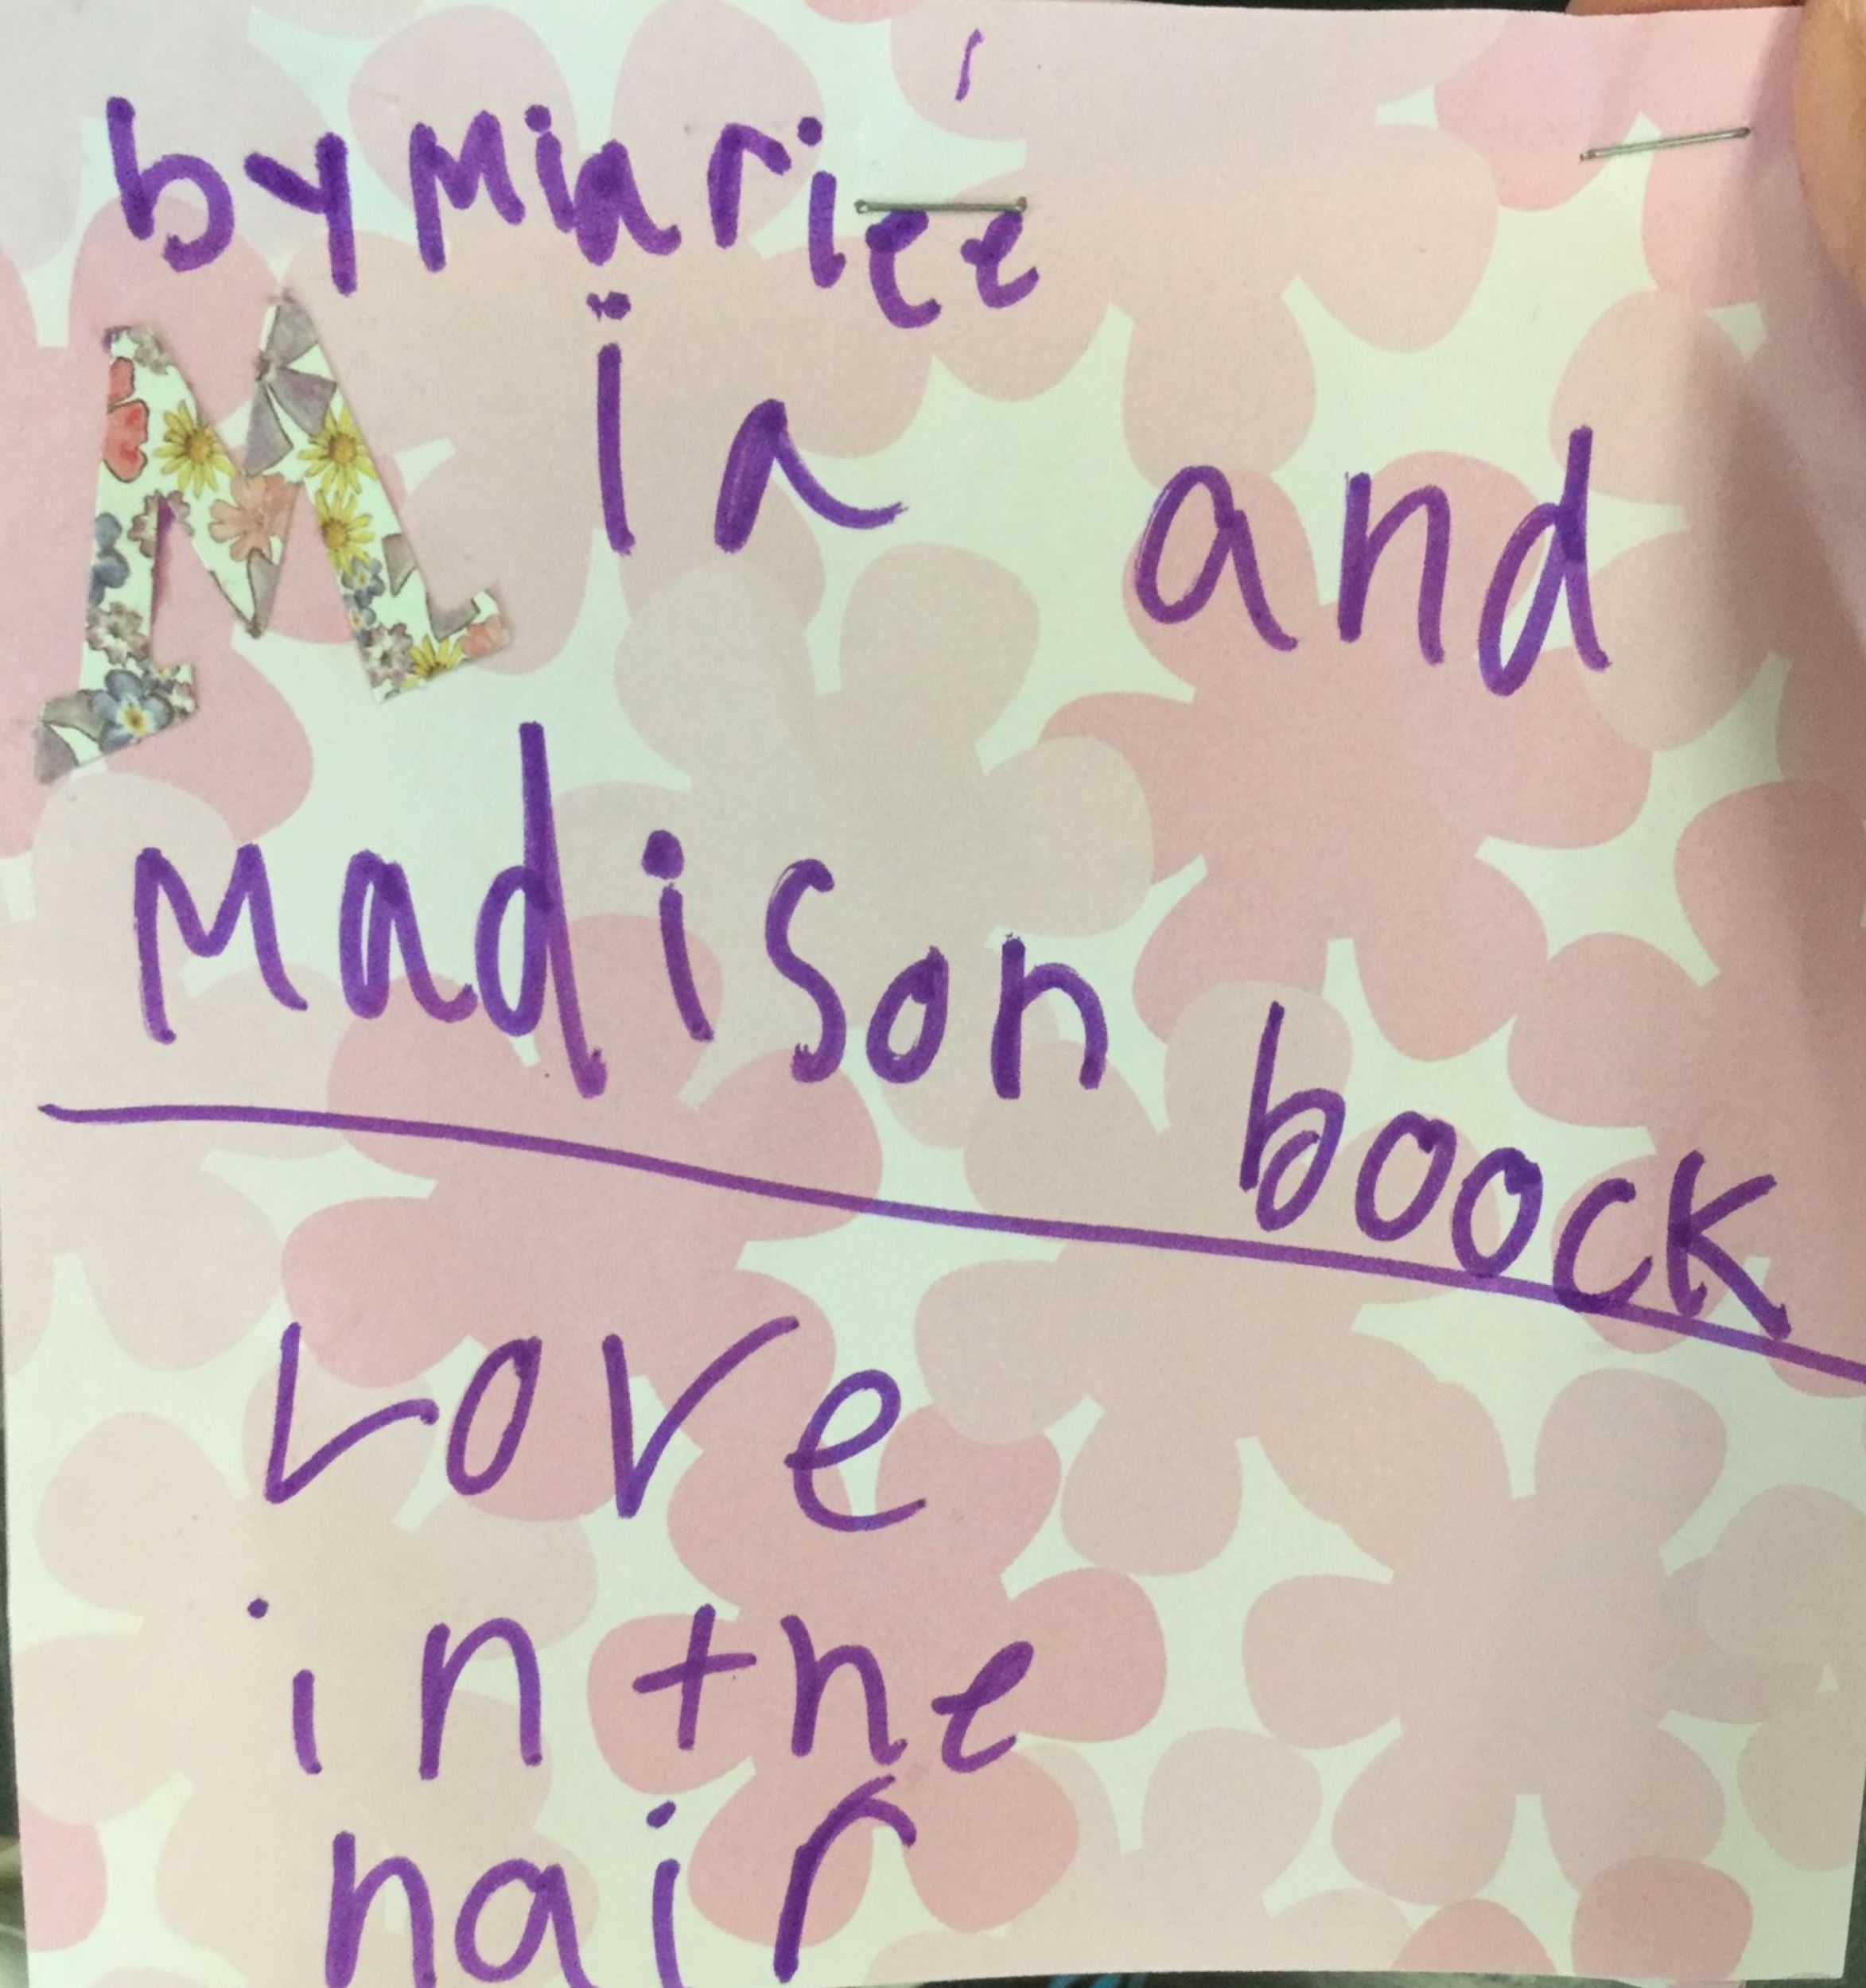 by Miariee
Mia and
Madison boock
Love
in the
hair